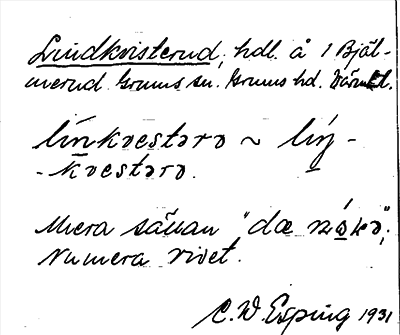 Lindkvisterud, hdl. å 1 Bjäl-
merud Grums sn. Grums hd. Värml.
línkvestərə ~ líŋ-
-kvestərə.
Mera sällan "dæ
Numera rivet.
C. W. Esping 1931